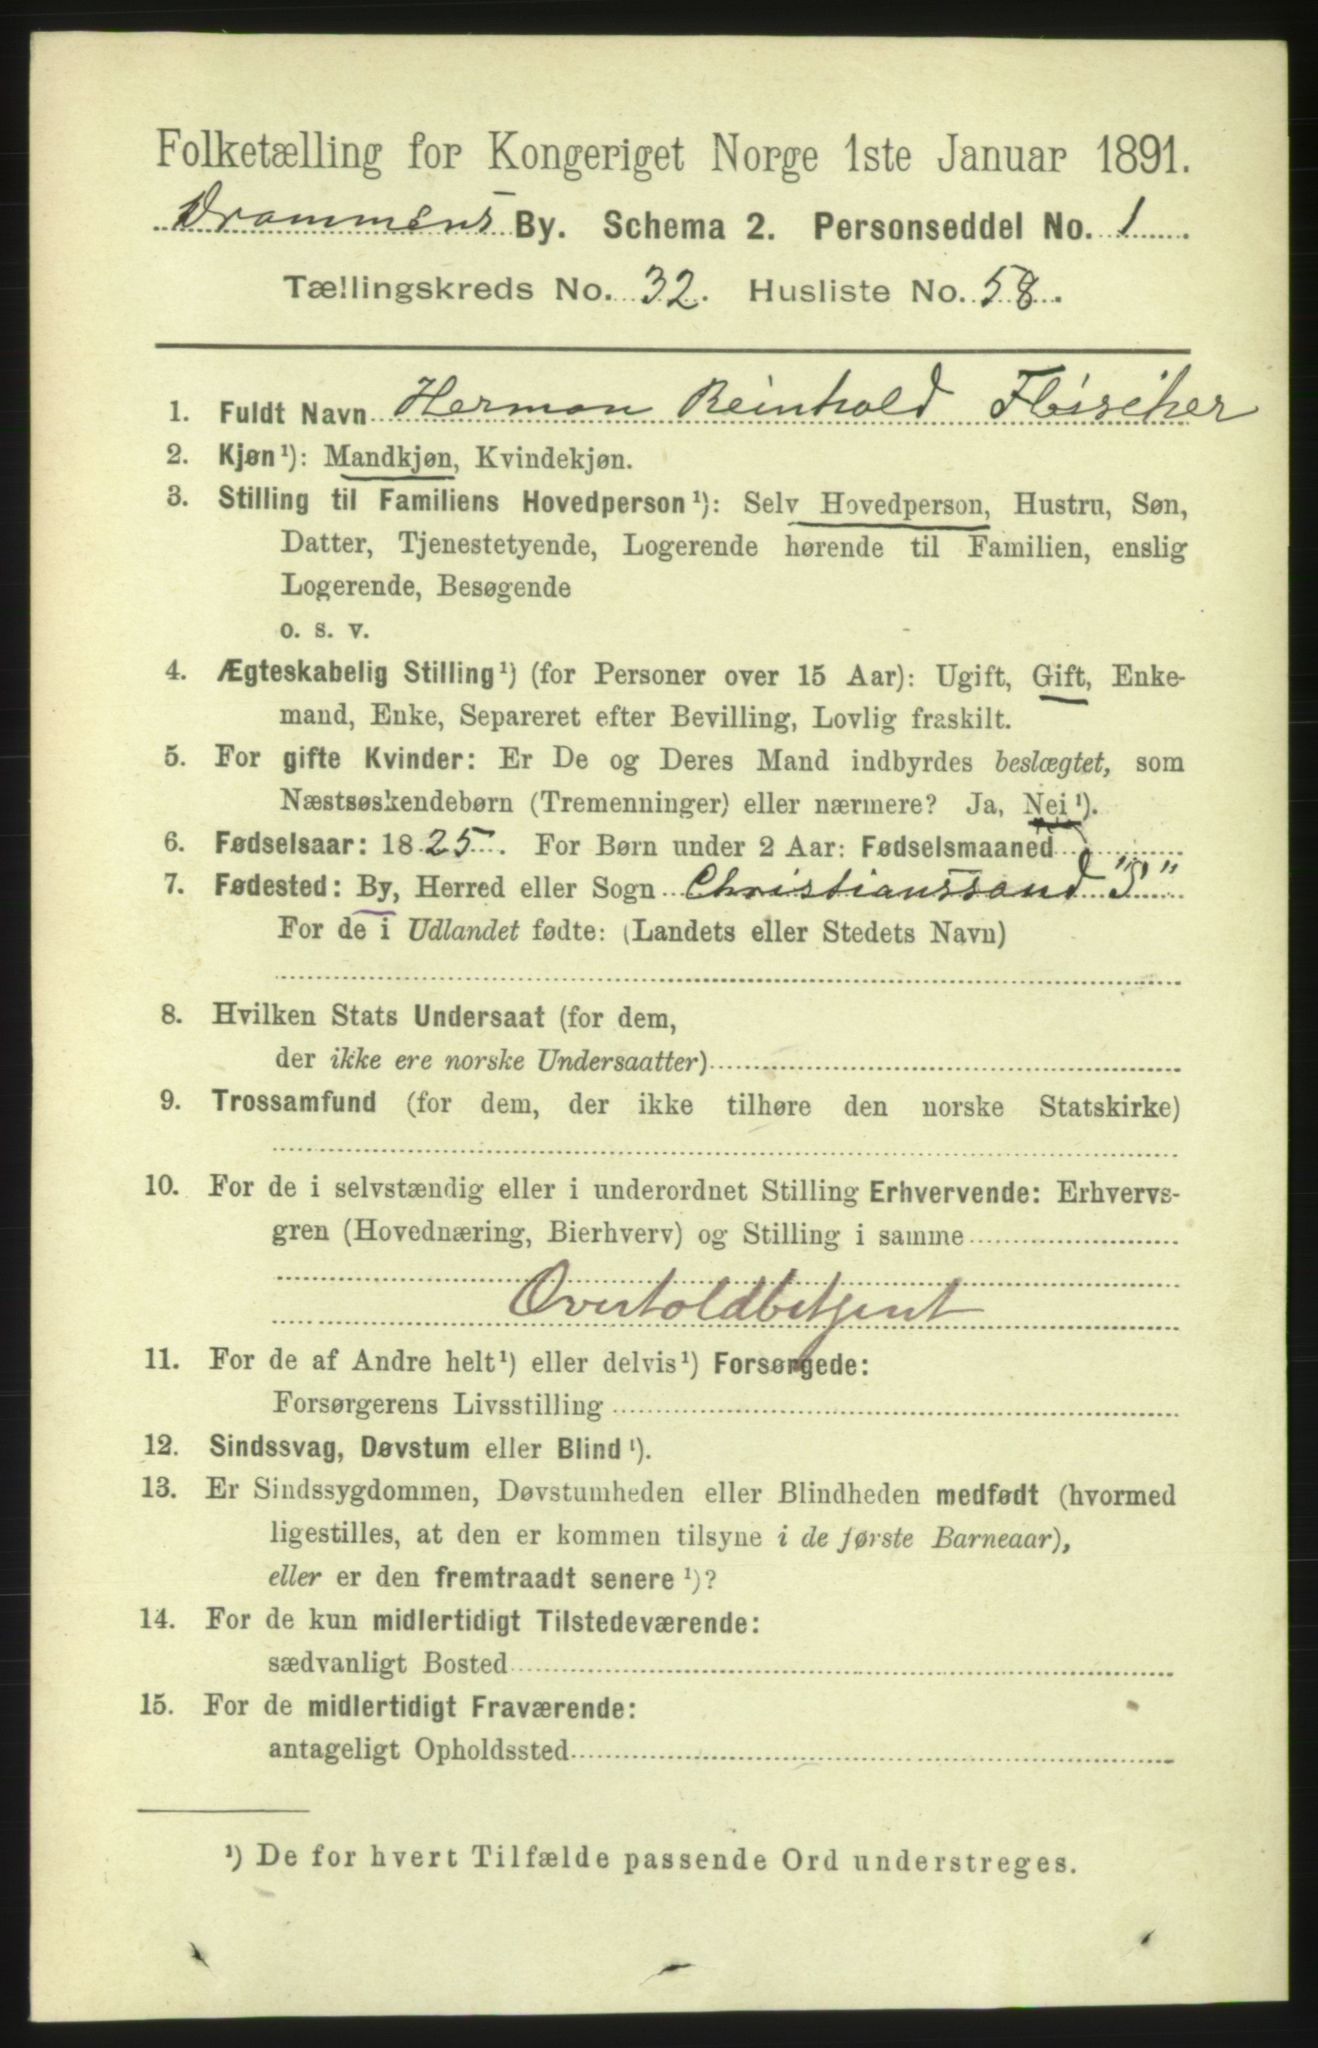 Folketælling for Kongeriget Norge 1ste Januar 1891.
Drammens By. Schema 2. Personseddel No. 1
Tællingskreds No. 32. Husliste No. 58.
1. Fuldt Navn Herman Reinhold Fleischer
2. Kjøn ¹): Mandkjøn, Kvindekjøn.
3. Stilling til Familiens Hovedperson ¹): Selv Hovedperson, Hustru, Søn,
Datter, Tjenestetyende, Logerende hørende til Familien, enslig
Logerende, Besøgende
o. s. v.
4. Ægteskabelig Stilling ¹) (for Personer over 15 Aar): Ugift, Gift, Enke-
mand, Enke, Separeret efter Bevilling, Lovlig fraskilt.
5. For gifte Kvinder: Er De og Deres Mand indbyrdes beslægtet, som
Næstsøskendebørn (Tremenninger) eller nærmere? Ja, Nei ¹).
6. Fødselsaar: 1825. For Børn under 2 Aar: Fødselsmaaned
7. Fødested: By, Herred eller Sogn Christianssand "S"
For de i Udlandet fødte: (Landets eller Stedets Navn)
8. Hvilken Stats Undersaat (for dem,
der ikke ere norske Undersaatter)
9. Trossamfund (for dem, der ikke tilhøre den norske Statskirke)
10. For de i selvstændig eller i underordnet Stilling Erhvervende: Erhvervs-
gren (Hovednæring, Bierhverv) og Stilling i samme
Overtoldbetjent
11. For de af Andre helt ¹) eller delvis ¹) Forsørgede:
Forsørgerens Livsstilling
12. Sindssvag, Døvstum eller Blind ¹).
13. Er Sindssygdommen, Døvstumheden eller Blindheden medfødt (hvormed
ligestilles, at den er kommen tilsyne i de første Barneaar),
eller er den fremtraadt senere ¹)?
14. For de kun midlertidigt Tilstedeværende:
sædvanligt Bosted
15. For de midlertidigt Fraværende:
antageligt Opholdssted
¹) De for hvert Tilfælde passende Ord understreges.